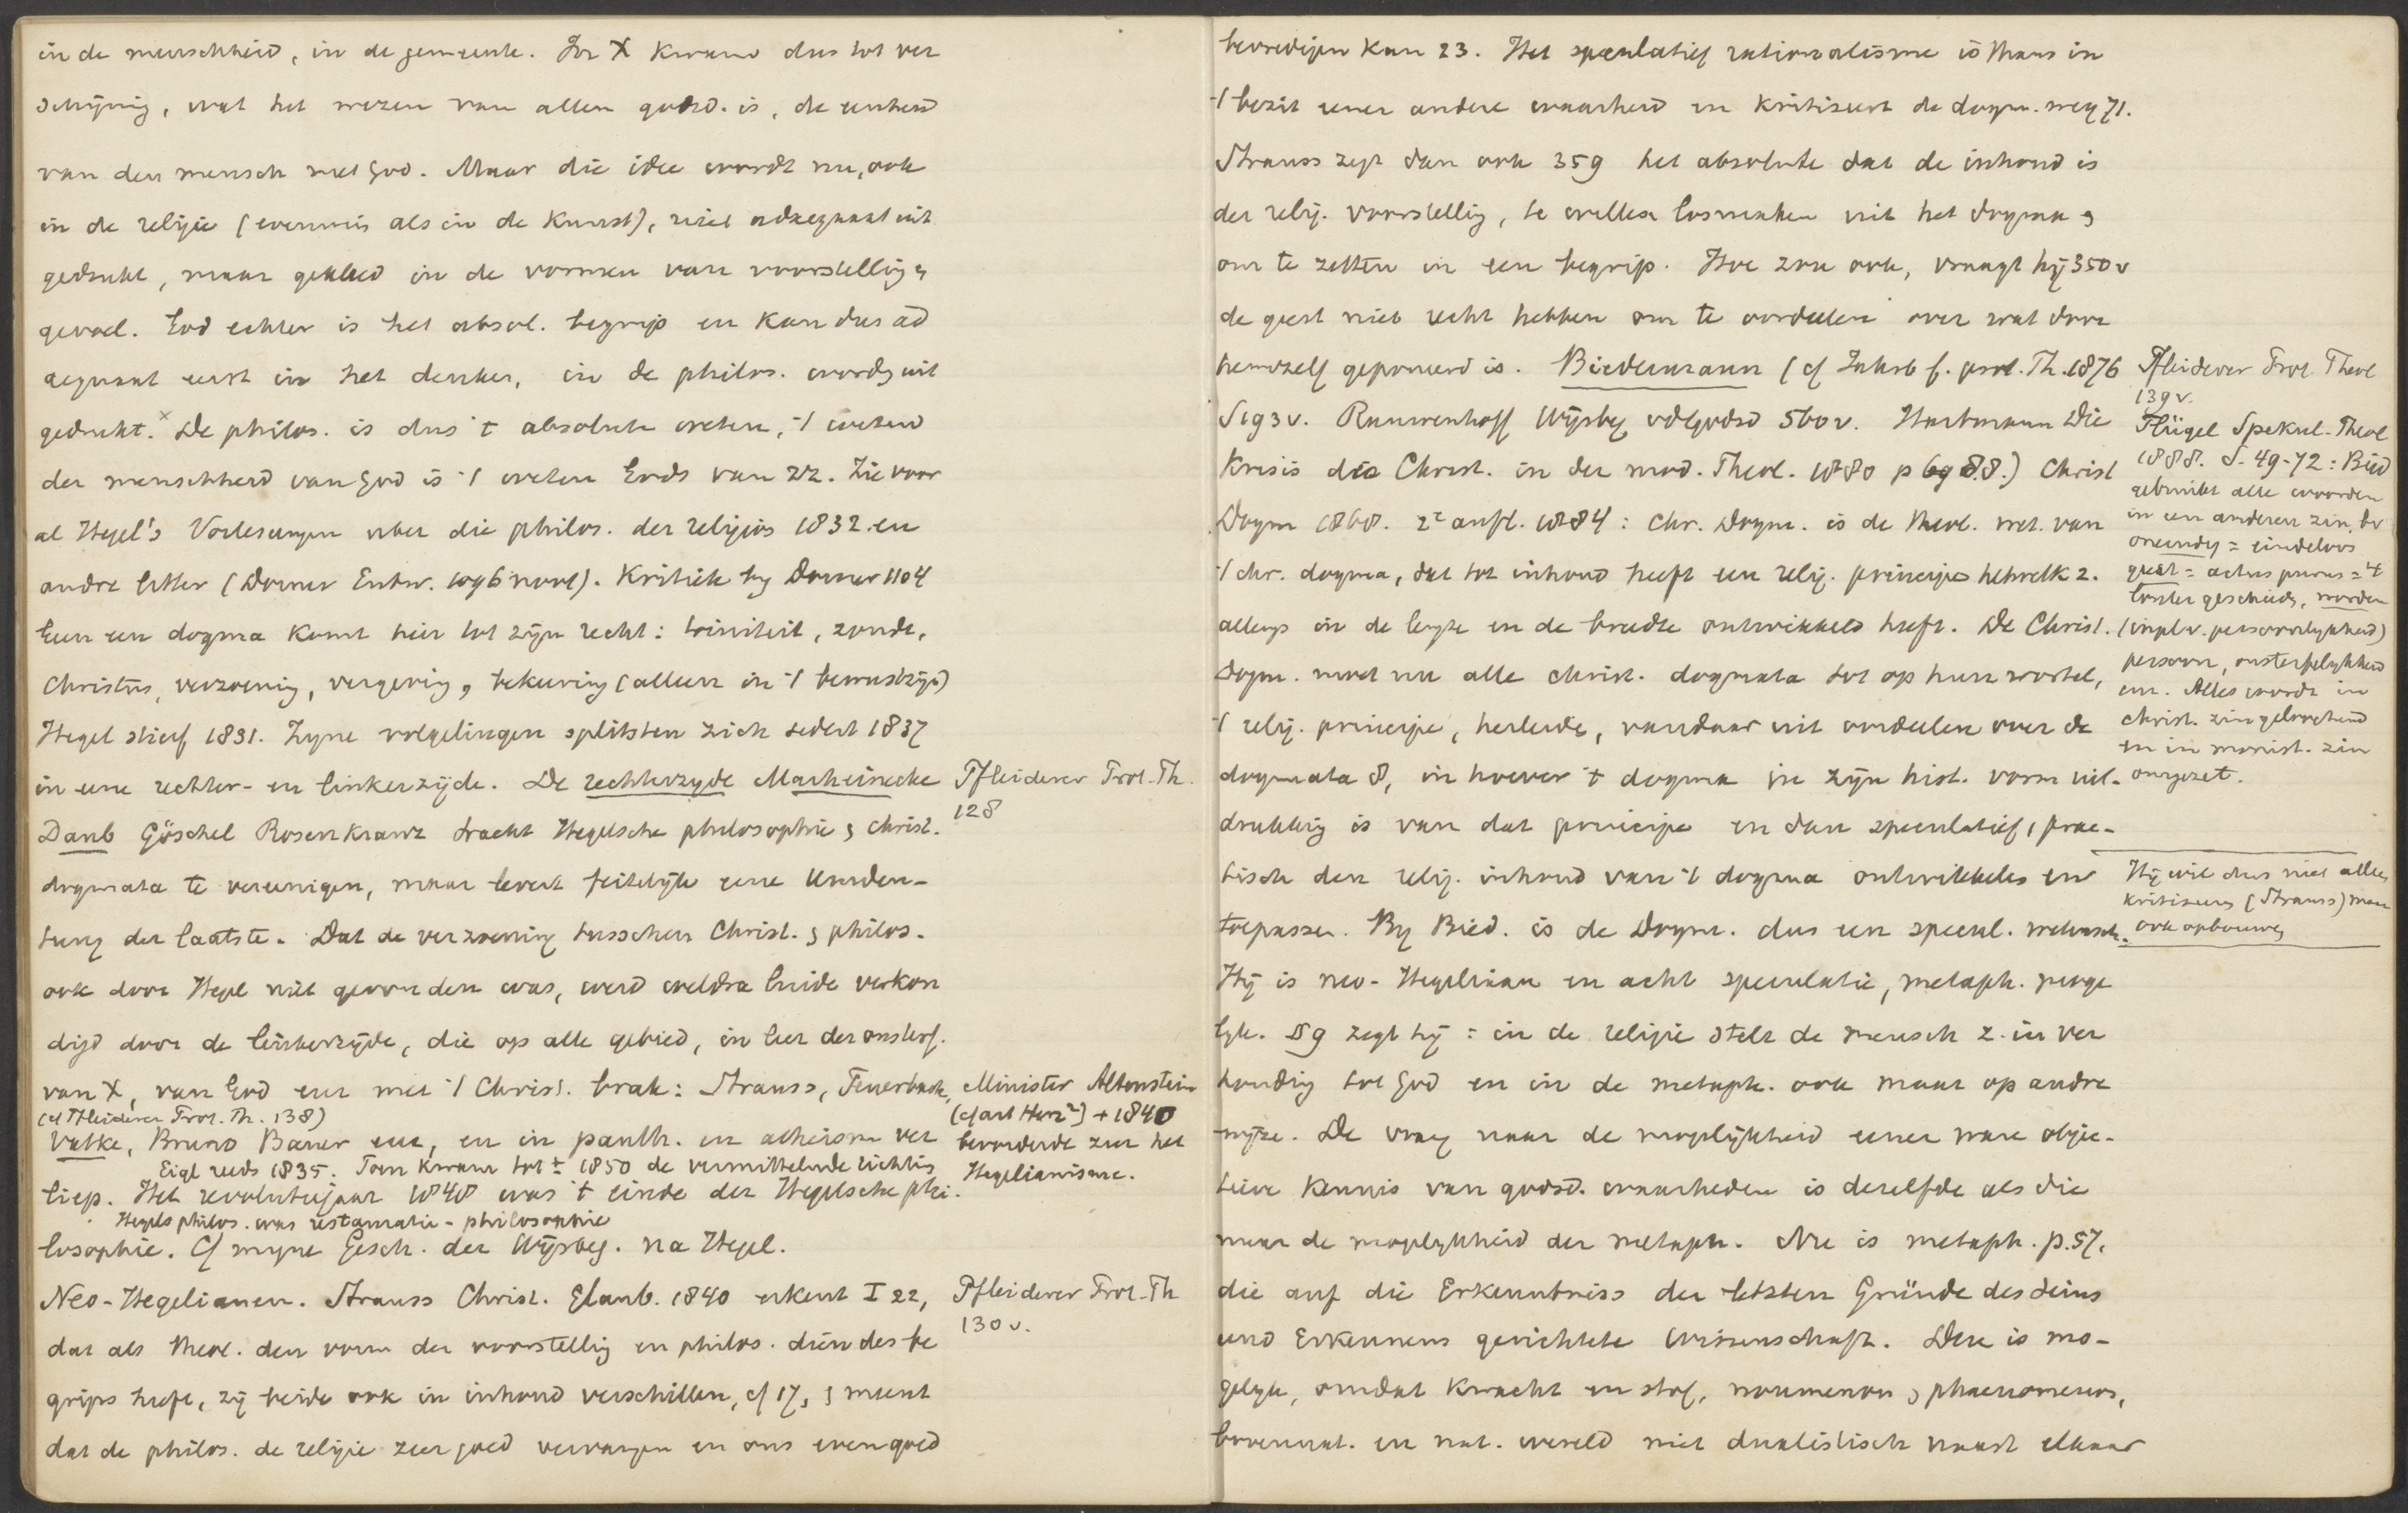 in de menschheid, in de gemeente. In X kwam dus tot ver
schijning, wat het wezen van allen godsd. is, de eenheid
van den mensch met God. Maar die idee wordt nu, ook
in de religie (evenmin als in de kunst), niet adaequaat uit
gedrukt, maar gekleed in de vormen van voorstelling &
gevoel. God echter is het absol. begrip en kan dus ad
aequaat eerst in het denken, in de philos. worden uit
gedrukt.x De philos. is dus 't absolute weten, 't weten
der menschheid van God is 't weten Gods van zz. Zie voor
al Hegel's Vorlesungen uber die philos. der religion 1832 en
andre litter (Dorner Entw. 1096 noot). Kritiek by Dorner 1104
Een en dogma komt hier tot zijn recht: triniteit, zonde,
Christus, verzoening, vergeving, bekeering (alleen in 't bewustzijn)
Hegel stierf 1831. Zyne volgelingen splitsten zich sedert 1837
in eene rechter- en linkerzijde. De rechterzyde Marheinecke
Daub Göschel Rosenkranz tracht Hegelsche philosophie & christ.
dogmata te vereenigen, maar levert feitelijk eene Umden-
tung der laatste. Dat de verzoening tusschen Christ. & philos.
ook door Hegel niet gevonden was, werd weldra luide verkon
digd door de linkerzijde, die op alle gebied, in leer der onsterf.
van X, van God enz met 't Christ. brak: Strauss, Feuerbach,
(cf Pfleiderer Prot. Th. 138)
Vatke, Bruno Bauer enz, en in panth. en atheism ver
Eigl reeds 1835. Toen kwam tot ± 1850 de vermittelnde richting
liep. Het revolutiejaar 1848 was 't einde der Hegelsche phi-
Hegels philos. was restauratie-philosophie
losophie. Cf myne Gesch. der Wijsbeg. na Hegel.
Neo-Hegelianen. Strauss Christ. Glaub. 1840 erkent I 22,
dat als theol. den vorm der voorstelling en philos. dien des be
grips heeft, zij beide ook in inhoud verschillen, cf 17, & meent
dat de philos. de religie zeer goed vervangen en ons even goed
Pfleiderer Prot. Th.
128
Minister Altenstein
(cf art Herz²) + 1840
bevorderde zeer het
Hegelianisme.
Pfleiderer Prot-Th
130 v.
bevredigen kan 23. Het speculatief rationalisme is thans in
't bezit eener andere waarheid en kritiseert de dogm. weg 71.
Strauss zegt dan ook 359 het absolute dat de inhoud is
der relig. voorstelling, te willen losmaken uit het dogma &
om te zetten in een begrip. Hoe zou ook, vraagt hij 350 v
de geest niet recht hebben om te oordeelen over wat door
hemzelf geponeerd is. Biedermann (cf Jahrb f. prot. Th. 1876
S 193 v. Rauwenhoff Wijsbeg vdGodsd 560 v. Hartmann Die
Krisis des Christ. in der mod. Theol. 1880 p 69 88.) Christ
Dogm 1868. 2e aufl. 1884: Chr. Dogm. is de theol. wet. van
't chr. dogma, dat tot inhoud heeft een relig. principe hetwelk z.
allengs in de lengte en de breedte ontwikkeld heeft. De Christ.
Dogm. moet nu alle christ. dogmata tot op hun wortel,
't relig. principe, herleide, vandaar uit oordeelen over de
dogmata 8, in hoever 't dogma in zijn hist. vorm uit-
drukking is van dat principe en dan speculatief, prac-
tisch den relig. inhoud van 't dogma ontwikkelen en
toepassen. By Bied. is de Dogm. dus een specul. wetensch.
Hij is neo-Hegeliaan en acht speculatie, metaph. moge
lyk. 59 zegt hij: in de religie stelt de mensch z. in ver
houding tot God en in de metaph. ook maar op andre
wijze. De vraag naar de mogelijkheid eener ware objec-
tieve kennis van godsd. waarheden is dezelfde als die
naar de mogelykheid der metaph. Nu is metaph. p. 57.
die auf die Erkenntniss der letzten Gründe des Seins
und Erkennens gerichtete Wissenschaft. Deze is mo-
gelyk, omdat kracht en stof, noumenon & phaenomenon,
bovennat. en nat. wereld niet dualistisch naast elkaar
Pfleiderer Prot. Theol
139 v.
Flügel Spekul. Theol
1888. S. 49-72: Bied
gebruikt alle woorden
in een anderen zin, bv
oneindig = eindeloos
geest = actus purus = 't
worden
(inpl. v. persoonlykheid)
persoon, onsterfelykheid
enz. Alles wordt in
christ. zin geloochend
en in monist. zin
omgezet.
Hij wil dus niet alleen
kritiseeren (Strauss) maar
ook opbouwen